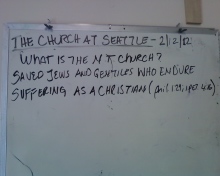 THE CHURCH AT SEATTLE - 2/12/12
WHAT IS THE N T CHURCH?
SAVED JEWS AND GENTILES WHO ENDURE
SUFFERING AS A CHRISTIAN (Phil. 1:29, 1 Pet 4:16)